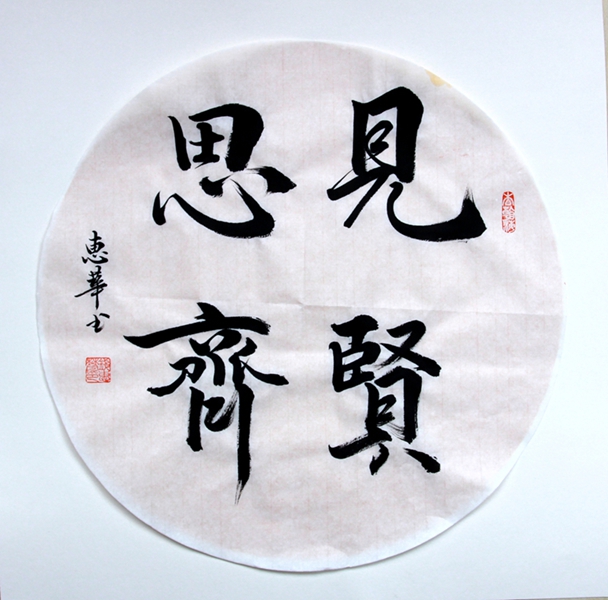 見賢
思齊
惠華书